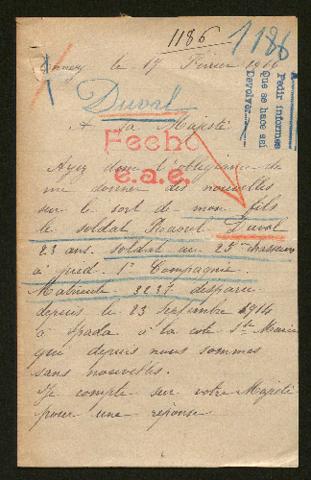 1186 1186
le 17 Février 1916
Pedir informes
Que se hace así
Devolver
Duval
A Sa Majesté
Fecho
e.a.e.
Ayez donc l'obligeance de
me donner des nouvelles
sur le sort de mon fils
le soldat Raoul Duval
23 ans. soldat au 25e chasseurs
à pied. 1e Compagnie.
Matricule 2237 disparu
depuis le 23 Septembre 1914
à Spada à la cote Ste Marie
que depuis nous sommes
sans nouvelles.
Je compte sur votre Majesté
pour une réponse